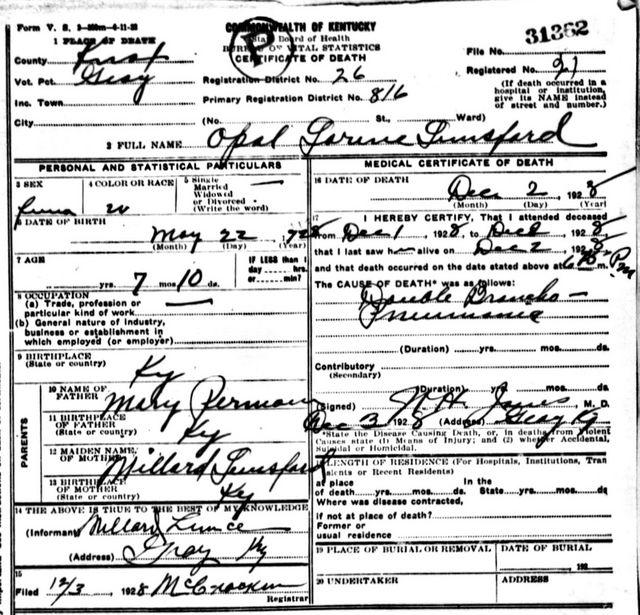 Form V. S. 3-200m-4-11-23
COMMONWEALTH OF KENTUCKY
State Board of Health
BUREAU OF VITAL STATISTICS
CERTIFICATE OF DEATH
31362
1 PLACE OF DEATH
County Knox
Vot. Pct. Gray
Inc. Town
City
Registration District No. 26
Primary Registration District No. 816
(No. St., Ward)
File No.
Registered No. 21
(If death occurred in a
hospital or institution,
give its NAME instead
of street and number.)
2 FULL NAME Opal Lorine Lunsford
PERSONAL AND STATISTICAL PARTICULARS
3 SEX
4 COLOR OR RACE
w
5 Single
Married
Widowed
or Divorced
(Write the word)
6 DATE OF BIRTH
May 22
(Month) (Day) (Year)
7 AGE
yrs. 7 mos 10 ds.
IF LESS than 1
day hrs.
or min?
8 OCCUPATION
(a) Trade, profession or
particular kind of work
(b) General nature of industry,
business or establishment in
which employed (or employer)
9 BIRTHPLACE
(State or country)
Ky
PARENTS
10 NAME OF
FATHER
Mary
11 BIRTHPLACE
OF FATHER
(State or country)
Ky
12 MAIDEN NAME
OF MOTHER
Millard Lunsford
13 BIRTHPLACE
OF MOTHER
(State or country)
Ky
14 THE ABOVE IS TRUE TO THE BEST OF MY KNOWLEDGE
(Informant)
(Address) Gray Ky
15
Filed 12/3 1928 McCracken
Registrar
MEDICAL CERTIFICATE OF DEATH
16 DATE OF DEATH
Dec 2 1928
(Month) (Day) (Year)
17
I HEREBY CERTIFY, That I attended deceased
from Dec 1 1928, to Dec 2 1928
that I last saw h alive on Dec 2 1928
and that death occurred on the date stated above at m. Pm
The CAUSE OF DEATH* was as follows:
Double Broncho-
Pneumonia
(Duration) yrs. mos. ds.
Contributory
(Secondary)
(Duration) yrs. mos. ds.
(Signed) Jones M. D.
Dec 3 1928 (Address) Gray Ky
*State the Disease Causing Death, or, in deaths from Violent
Causes state (1) Means of Injury; and (2) whether Accidental,
Suicidal or Homicidal.
LENGTH OF RESIDENCE (For Hospitals, Institutions, Tran
sients or Recent Residents)
at place In the
of death yrs. mos. ds. State yrs. mos. ds.
Where was disease contracted,
if not at place of death?
Former or
usual residence
19 PLACE OF BURIAL OR REMOVAL
DATE OF BURIAL
192
20 UNDERTAKER
ADDRESS